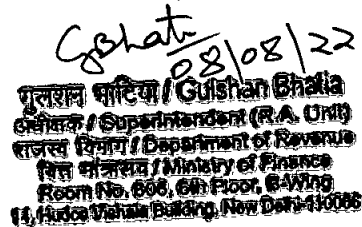 GBhati
08/08/22
गुलशन भाटिया / Gulshan Bhatia
अधीक्षक / Superintendent (R.A. Unit)
राजस्व विभाग / Department of Revenue
वित्त मंत्रालय / Ministry of Finance
Room No. 606, 6th Floor, B-Wing
14, Hudco Vishala Building, New Delhi-110066